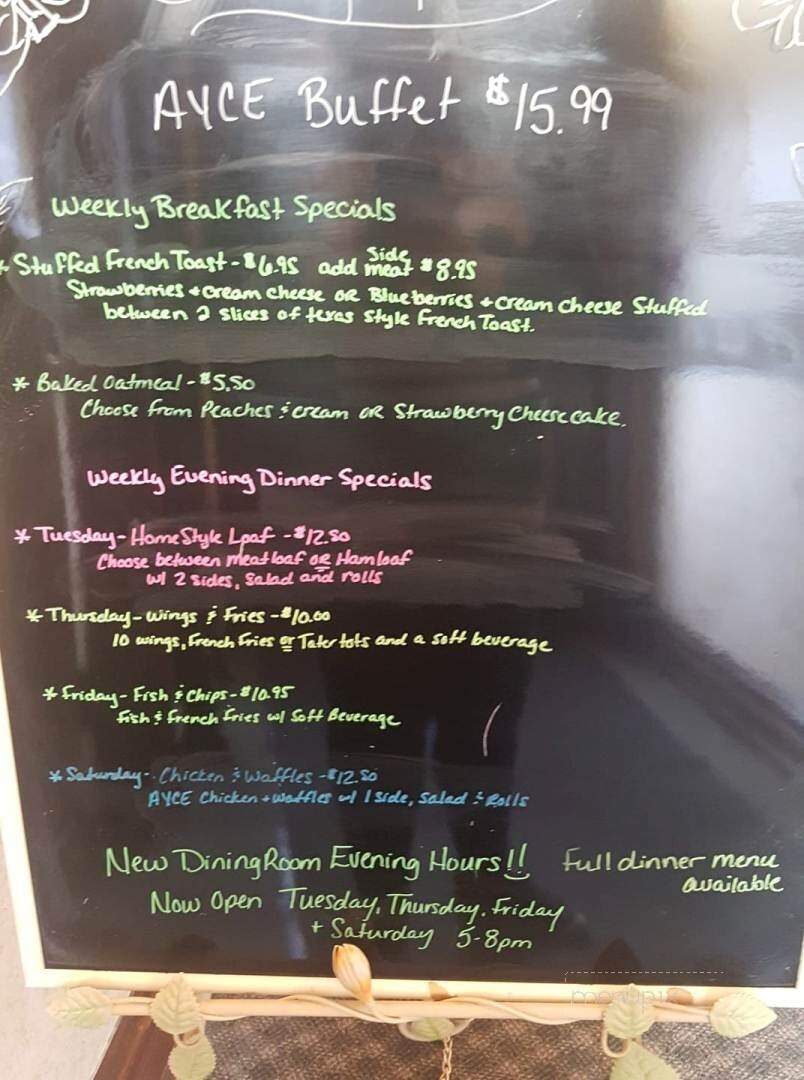 AYCE Buffet $15.99
Weekly Breakfast Specials
* Stuffed French Toast - $6.95 add Side meat $8.95
Strawberries + cream cheese OR Blueberries + cream cheese Stuffed
between 2 slices of texas style French Toast.
* Baked Oatmeal - $5.50
Choose from Peaches & cream OR Strawberry Cheesecake.
Weekly Evening Dinner Specials
* Tuesday - HomeStyle Loaf - $12.50
Choose between meatloaf OR Hamloaf
w/ 2 sides, salad and rolls
* Thursday - Wings & Fries - $10.00
10 wings, French Fries or Tater tots and a soft beverage
* Friday - Fish & Chips - $10.95
Fish & French Fries w/ Soft Beverage
* Saturday - Chicken & Waffles - $12.50
AYCE Chicken + waffles w/ 1 Side, Salad & Rolls
New Dining Room Evening Hours!! Full dinner menu
available
Now Open Tuesday, Thursday, Friday
+ Saturday 5-8pm